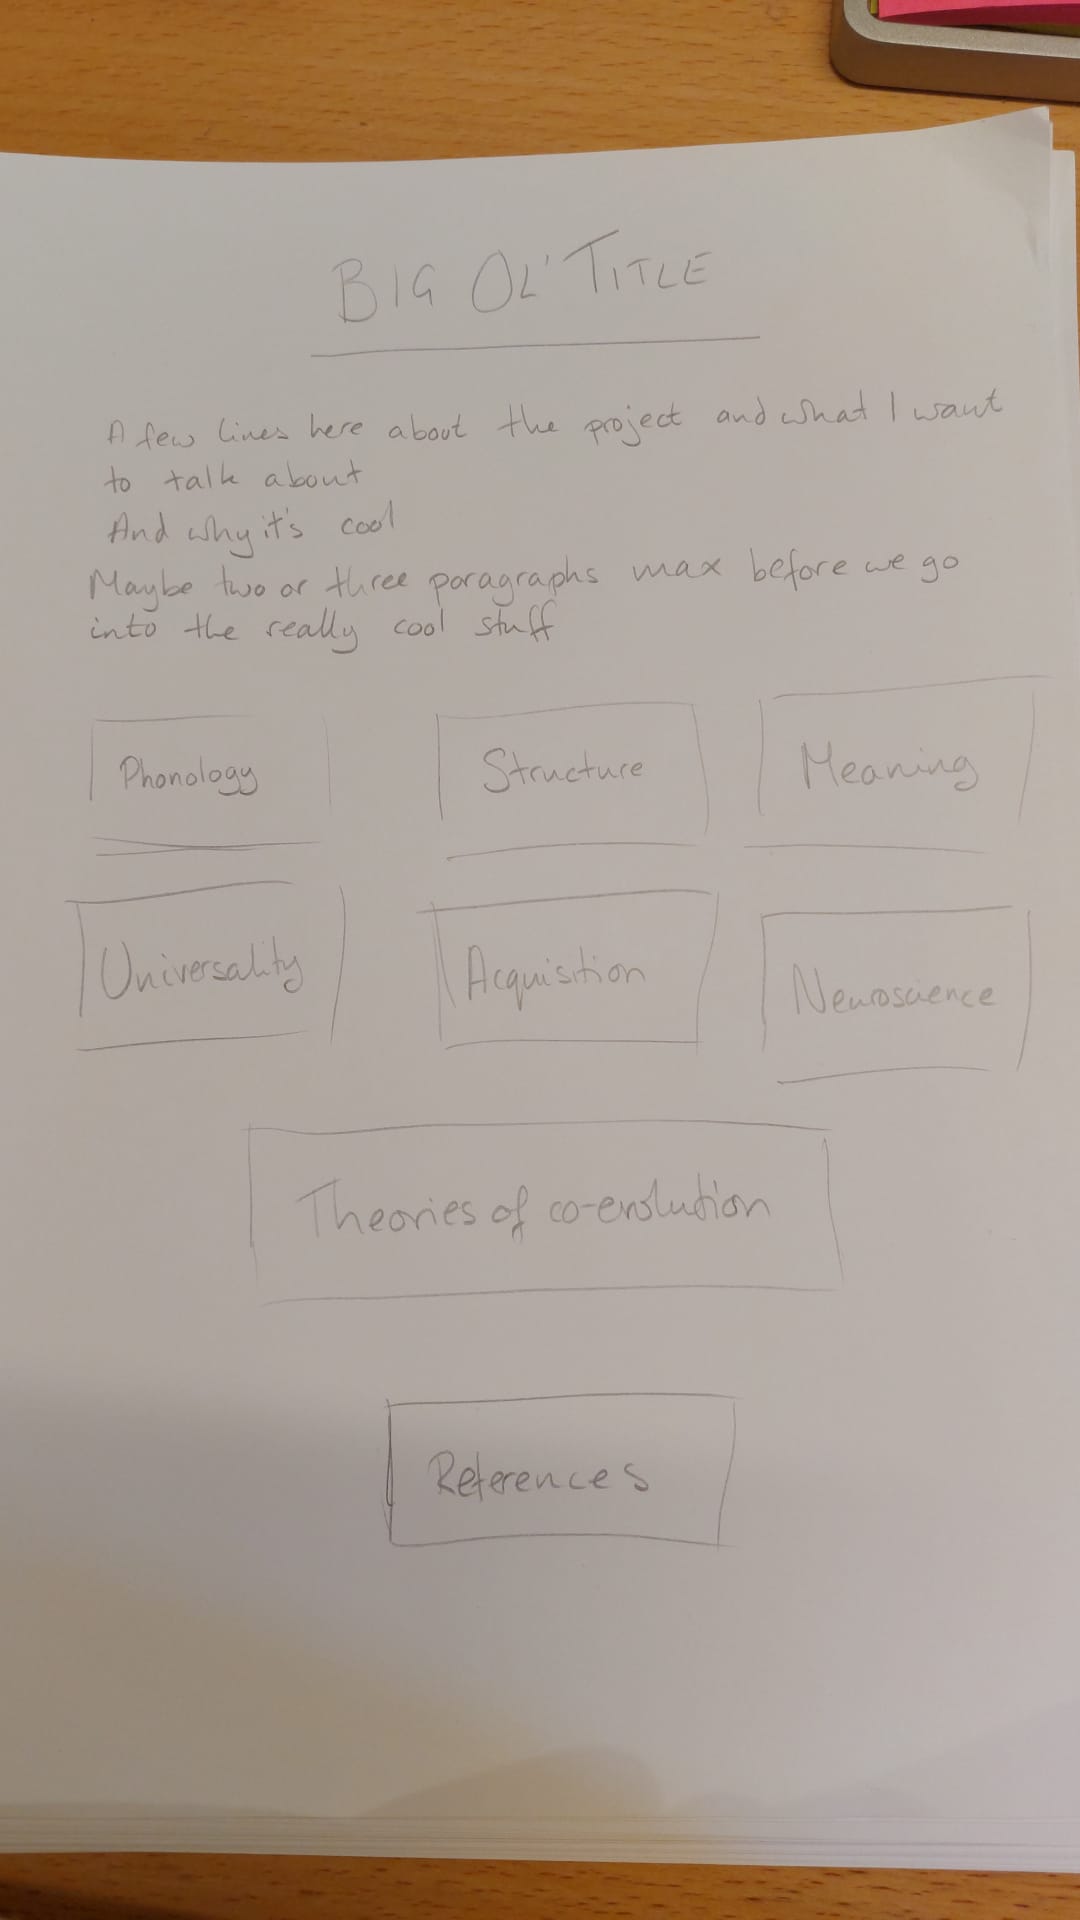 BIG OL' TITLE
A few lines here about the project and what I want
to talk about
And why it's cool
Maybe two or three paragraphs max before we go
into the really cool stuff
Phonology Structure Meaning
Universality Acquisition Neuroscience
Theories of co-evolution
References